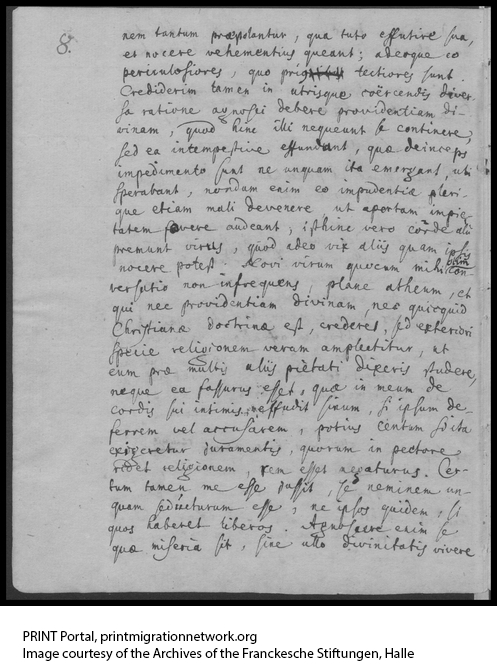 8.
nem tantum præstolantur, qua tuto effutire sua,
et nocere vehementius queant; adeoque eo
periculosiores, quo tectiores sunt.
Crediderim tamen in utrisque coërcendis diver
sa ratione agnosci debere providentiam di-
vinam, quod hinc illi nequeunt se continere,
sed ea intempestive effundant, quæ deinceps
impedimento sunt ne unquam ita emergant, uti
sperabant, nondum enim eo impudentiæ pleri-
que etiam mali devenere ut apertam impie-
tatem fovere audeant; isthinc vero corde alii
premunt virus, quod adeo vix aliis quam ipsis
nocere potest. Novi virum quocum mihi olim con
versatio non infrequens, plane atheum, et
qui nec providentiam divinam, nec quicquid
Christianæ doctrinæ est, crederet, sed exteriori
specie religionem veram amplectitur, ut
eum præ multis aliis pietati dixeris studere,
neque ea fassurus esset, quæ in meum de
cordis sui intimis effudit sinum, si ipsum de-
ferrem vel accusarem, potius centum si ita
exigeretur juramentis, quorum in pectore
ridet religionem, rem esset negaturus. Cer-
tum tamen me esse jussit, se neminem un-
quam seducturum esse, ne ipsos quidem, si
quos haberet liberos. Agnoscere enim se
quæ miseria sit, sine ullo divinitatis vivere
PRINT Portal, printmigrationnetwork.org
Image courtesy of the Archives of the Franckesche Stiftungen, Halle